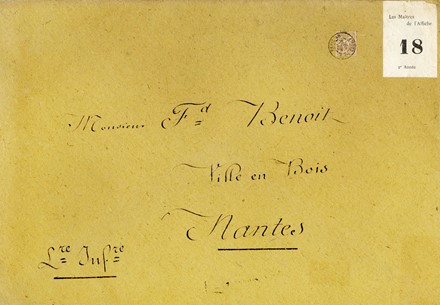 Les Maîtres
de l'Affiche
18
2e Année
Monsieur Fd Benoit
Ville en Bois
Nantes
Lre Infre